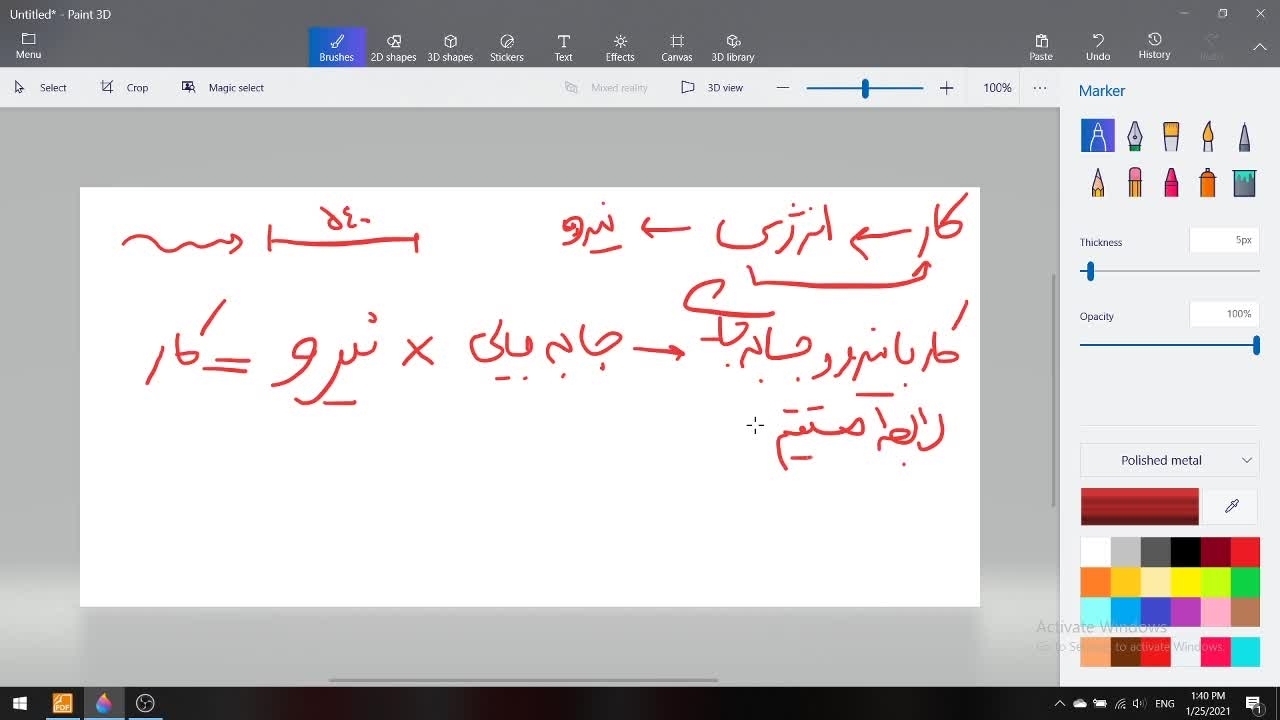 Untitled* - Paint 3D
Menu
Brushes 2D shapes 3D shapes Stickers Text Effects Canvas 3D library Paste Undo History Redo
Select Crop Magic select Mixed reality 3D view 100% ...
Marker
Thickness 5px
Opacity 100%
Polished metal
کار ← انرژی ← نیرو
کار با نیرو و جابه جایی → جابه جایی × نیرو = کار
رابطه مستقیم
Activate Windows
Go to Settings to activate Windows.
ENG 1:40 PM
1/25/2021
PDF
1